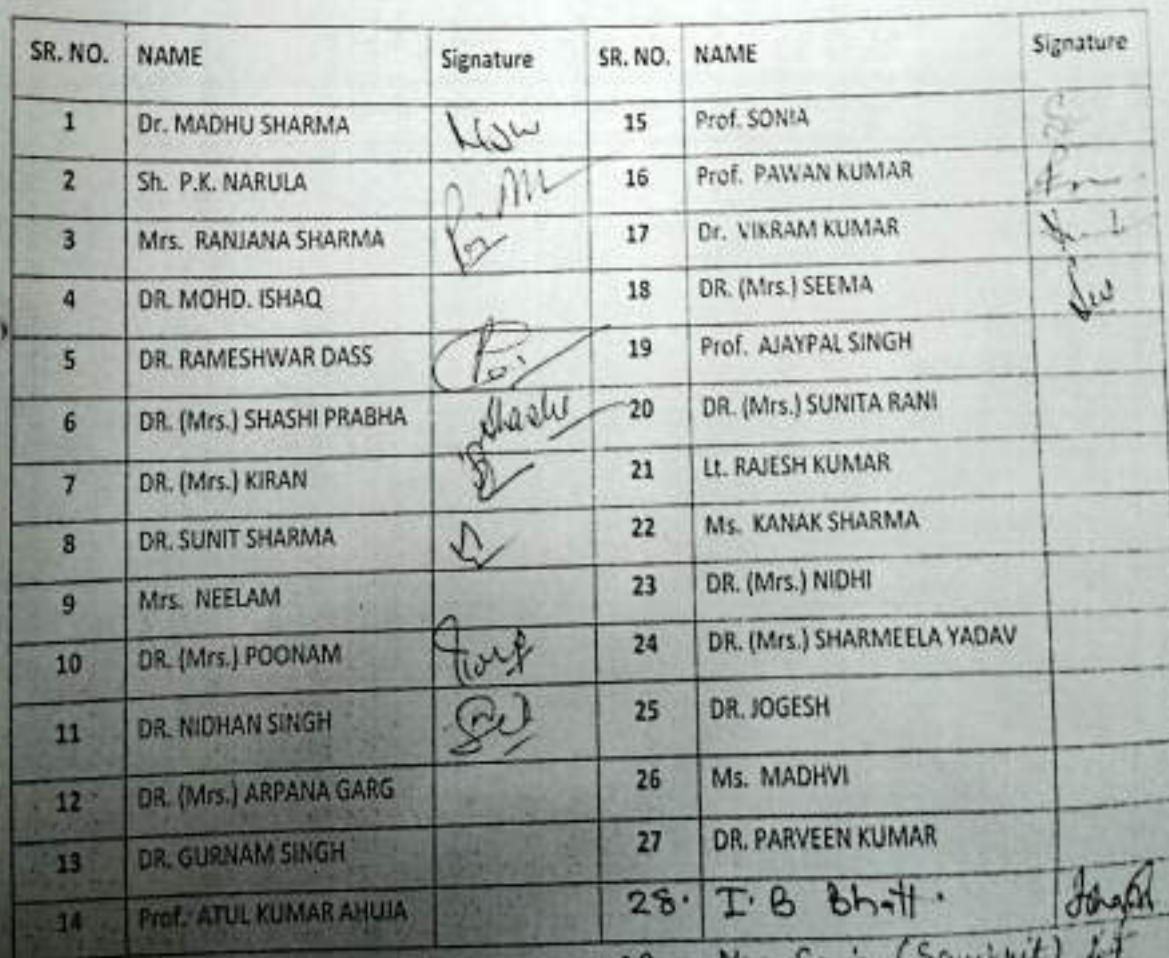 SR. NO. NAME Signature SR. NO. NAME Signature
1 Dr. MADHU SHARMA 15 Prof. SONIA
2 Sh. P.K. NARULA 16 Prof. PAWAN KUMAR
3 Mrs. RANJANA SHARMA 17 Dr. VIKRAM KUMAR
4 DR. MOHD. ISHAQ 18 DR. (Mrs.) SEEMA
5 DR. RAMESHWAR DASS 19 Prof. AJAYPAL SINGH
6 DR. (Mrs.) SHASHI PRABHA Shashi 20 DR. (Mrs.) SUNITA RANI
7 DR. (Mrs.) KIRAN 21 Lt. RAJESH KUMAR
8 DR. SUNIT SHARMA 22 Ms. KANAK SHARMA
9 Mrs. NEELAM 23 DR. (Mrs.) NIDHI
10 DR. (Mrs.) POONAM 24 DR. (Mrs.) SHARMEELA YADAV
11 DR. NIDHAN SINGH 25 DR. JOGESH
12 DR. (Mrs.) ARPANA GARG 26 Ms. MADHVI
13 DR. GURNAM SINGH 27 DR. PARVEEN KUMAR
14 Prof. ATUL KUMAR AHUJA 28. I. B Bhatt.